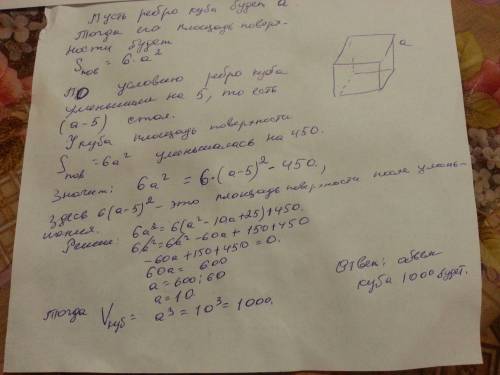 Пусть ребро куба будет a
Тогда его площадь поверх-
ности будет
Sпов = 6·a²
a
По условию ребро куба
уменьшили на 5, то есть
(a-5) стало.
У куба площадь поверхности
Sпов = 6a² уменьшалась на 450.
Значит: 6a² = 6·(a-5)² - 450.,
Здесь 6(a-5)² - это площадь поверхности после умень-
шения.
Решение: 6a² = 6(a² - 10a + 25) + 450.
6a² = 6a² - 60a + 150 + 450
-60a + 150 + 450 = 0.
60a = 600
a = 600 : 60
a = 10.
Тогда Vкуб = a³ = 10³ = 1000.
Ответ: объем
куба 1000 будет.